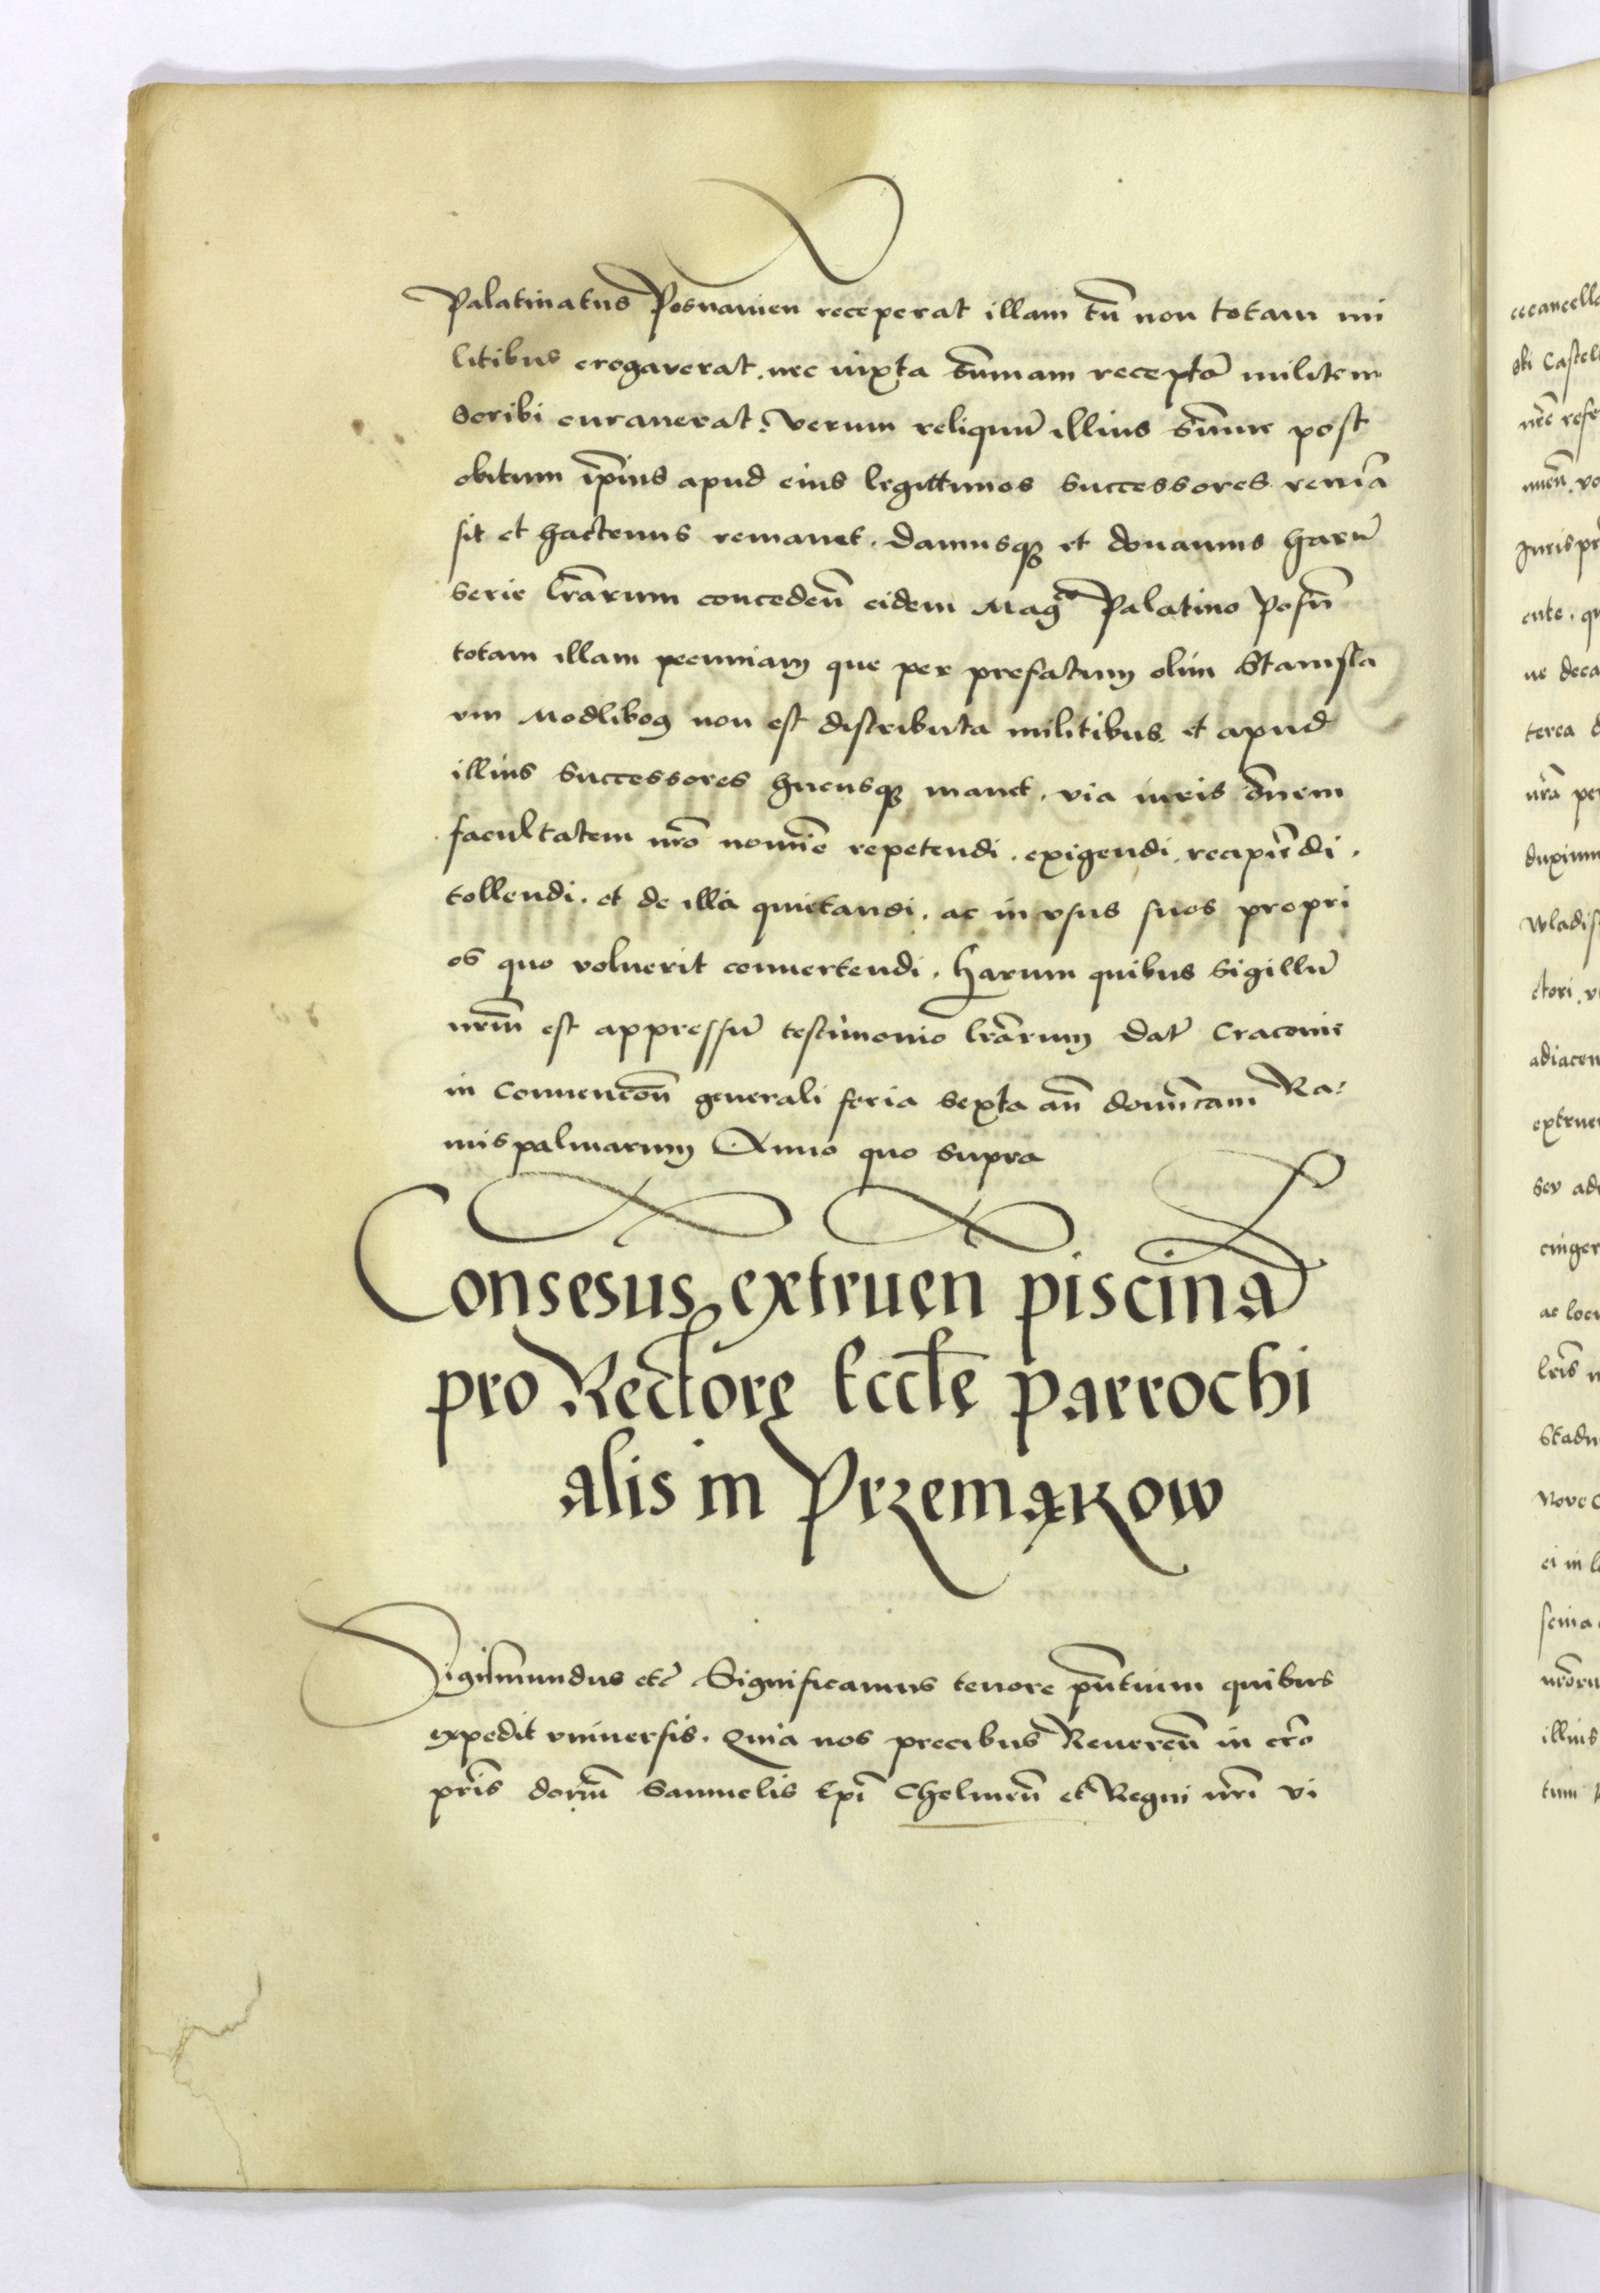 Palatinatus Posnanien receperat illam tn̄ non totam mi
litibus erogaverat. nec iuxta sūmam receptā militem
scribi curaverat. verum reliquū illius sūme post
obitum ip̄ius apud eius legittimos successores remā
sit et hactenus remanet. damusq₃ et donamus harū
serie lr̄arum conceden̄ eidem Magco Palatino Posn̄
totam illam pecuniam que per prefatum olim Stanisla
vm Modlibog non est distributa militibus et apud
illius successores hucusq₃ manet. via iuris ōnem
facultatem nr̄o nomīe repetendi. exigendi. recipiēdi.
tollendi. et de illa quietandi. ac in vsus suos propri
os quo voluerit convertendi. Harum quibus sigillū
nr̄m est appressū testimonio lr̄arum dat̄ Cracovie
in convencōn generali feria sexta an̄ domīcam Ra-
mispalmarum Anno quo supra
Consesus extruen piscina
pro Rectore Eccl̄e parrochi
alis in Przemąkow
Sigismundus etc̄ Significamus tenore pn̄tium quibus
expedit vniversis. Quia nos precibus Reveren̄ in cr̄o
pr̄is domī Samuelis Ep̄i Chelmen̄ et Regni nr̄i vi
ccancella
ski Castel
nr̄e refe
ente. qu
ne deca
terea d
nr̄a per
duximu
Wladis
ctori. v
adiacen
extruen
seu ad
cinger
ac loc
Stadn
Nove
ei in l
illius
tum